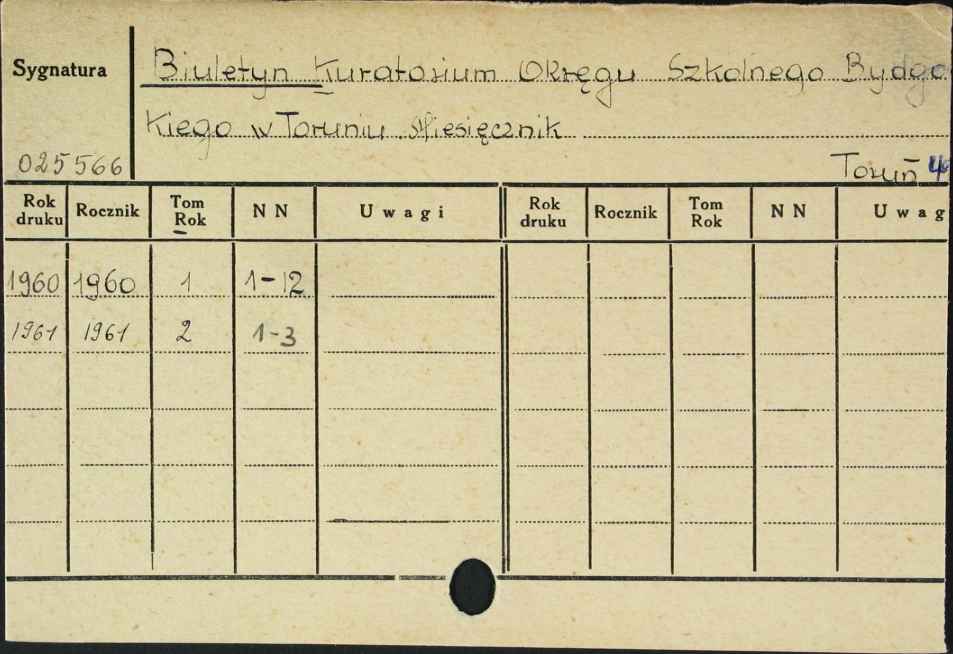 Sygnatura
Biuletyn Kuratorium Okręgu Szkolnego Bydgo
Kiego w Toruniu Miesięcznik
025566
Toruń 4
Rok druku Rocznik Tom Rok N N Uwagi Rok druku Rocznik Tom Rok N N Uwag
1960 1960 1 1-12
1961 1961 2 1-3